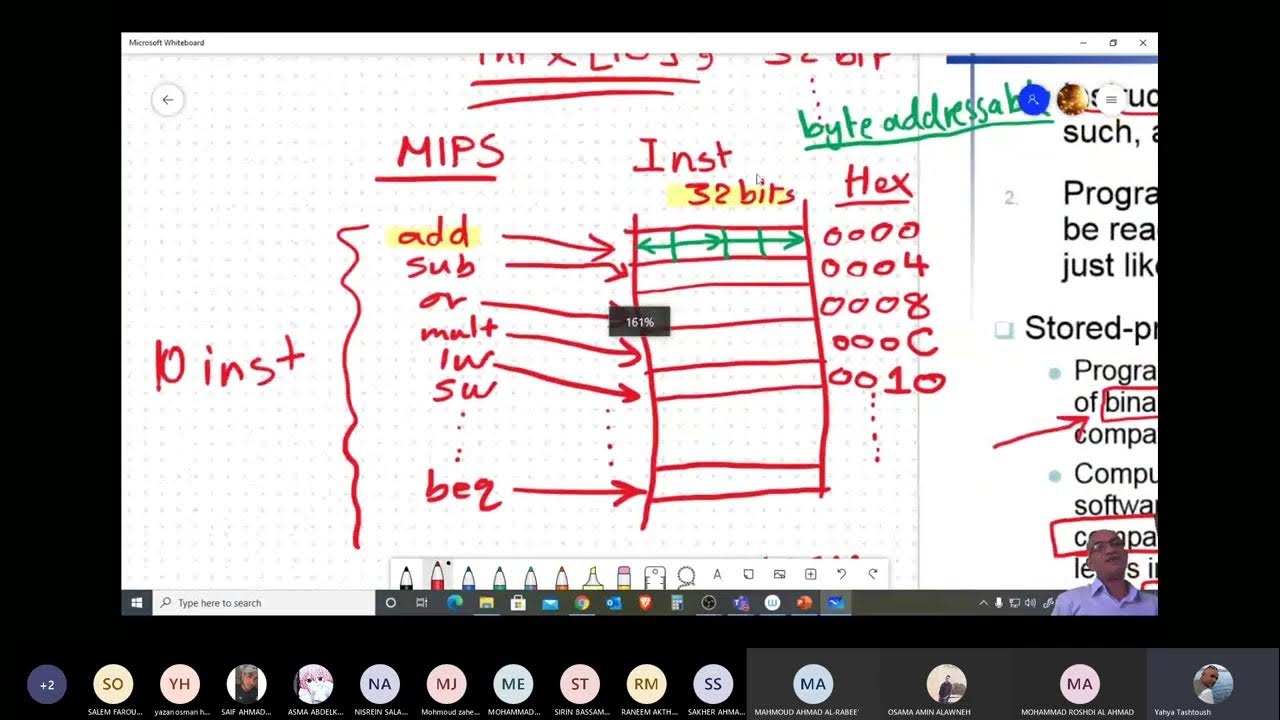 Microsoft Whiteboard
int x [10]; 32 bit
byte addressable
MIPS
Inst
32 bits
Hex
add
sub
or
mult
lw
sw
beq
10 inst
0000
0004
0008
000C
0010
161%
such, a
2.
Progra
be rea
just like
Stored-pr
Progra
of bina
compa
Compu
softwa
compa
Type here to search
+2
SO
YH
NA
MJ
ME
ST
RM
SS
MA
MA
SALEM FAROU...
yazan osman h...
SAIF AHMAD...
ASMA ABDELK...
NISREIN SALA...
Mohmoud zahe...
MOHAMMAD...
SIRIN BASSAM...
RANEEM AKTH...
SAKHER AHMA...
MAHMOUD AHMAD AL-RABEE'
OSAMA AMIN ALAWNEH
MOHAMMAD ROSHDI AL AHMAD
Yahya Tashtoush